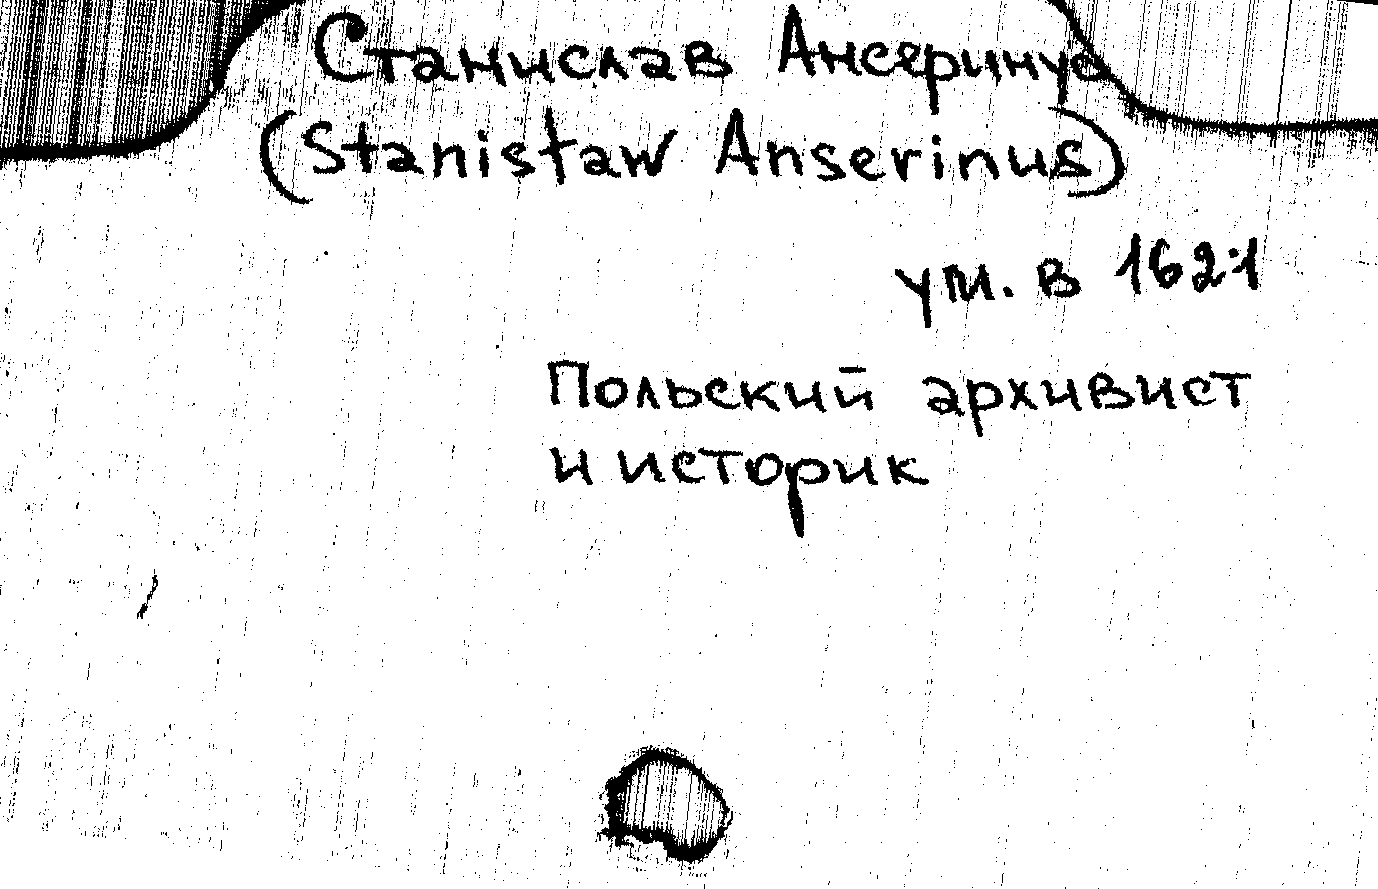 Станислав Ансеринус
(Stanisław Anserinus)
ум. в 1621
Польский архивист
и историк